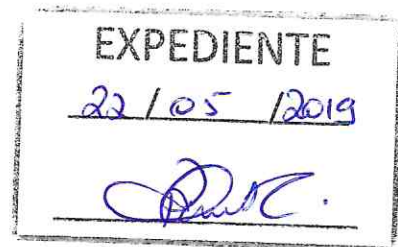 EXPEDIENTE
22 / 05 / 2019